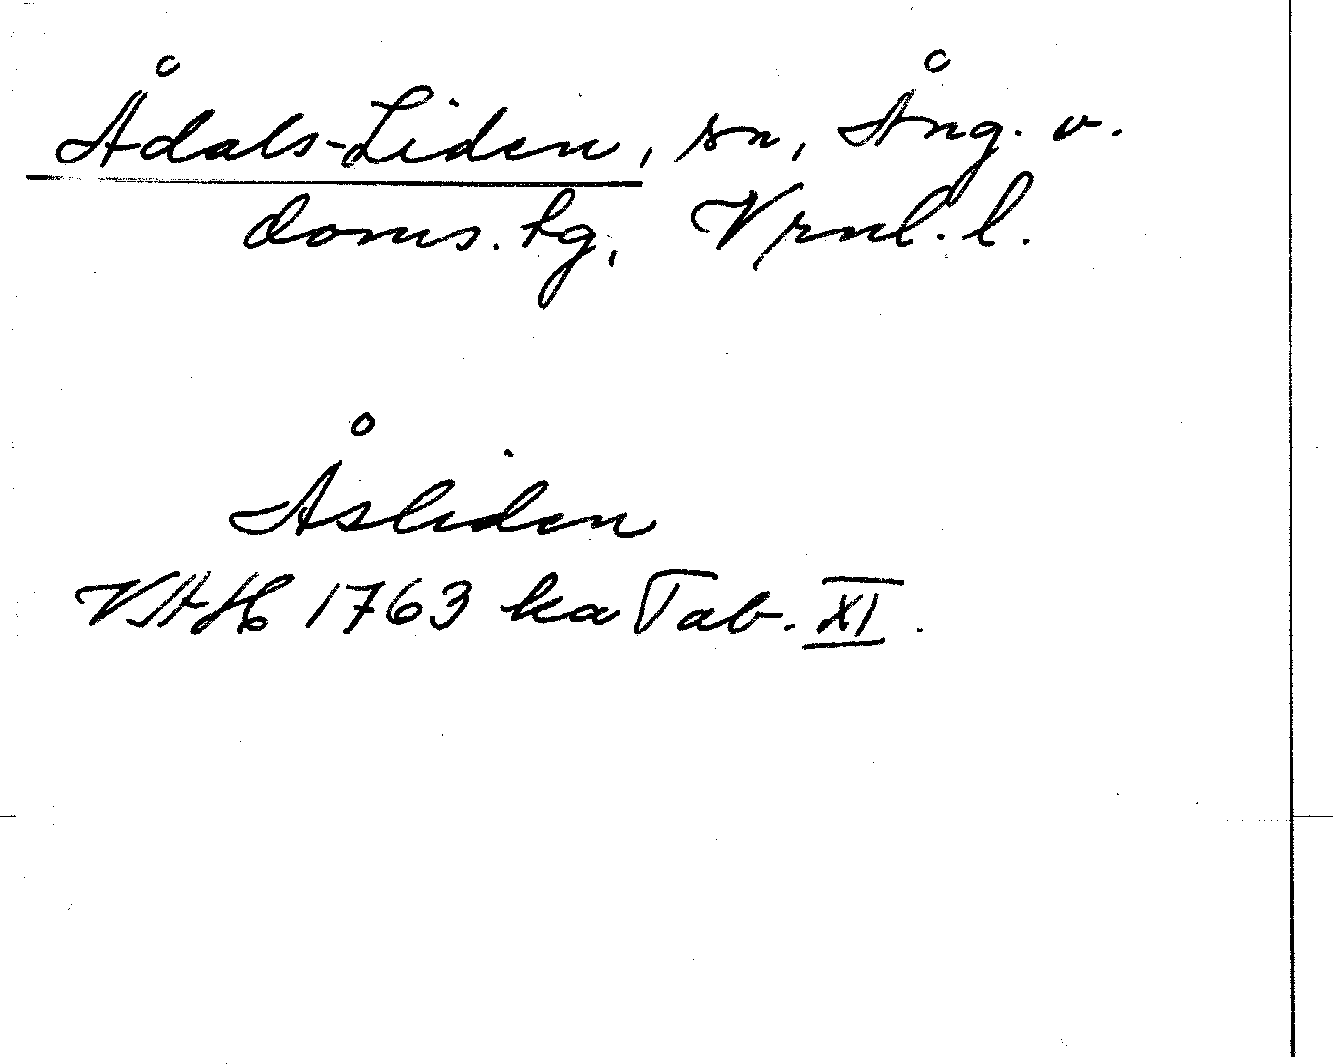 Ådals-Liden, sn, Ång. v.
doms. tg, Vrnl. l.
Åsliden
VAH 1763 ka Tab. XI.